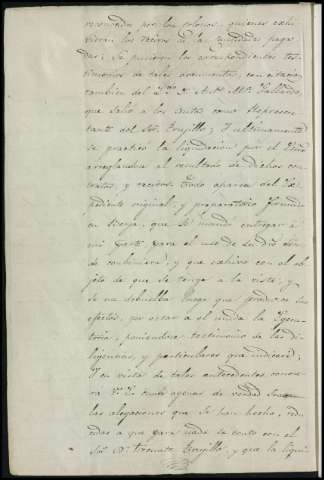 reconocida por los colonos, quienes exhi-
bieron los recivos de las cantidades paga-
das; Se pusieron los correspondientes tes-
timonios de tales documentos, con citacion
tambien del D. Antº Mª Gallardo,
que salió a los Autos como Represen-
tante del Sor. Trujillo; Y ultimamente
se practicó la liquidacion por el
arreglandose al resultado de dichos con-
tratos, y recivos. Todo aparece del Es-
pediente original, y preparatorio formado
en que se mandó entregar á
mi parte para el uso de su dro. don-
de combiniera, y que exhivo con el ob-
jeto de que se tenga á la vista, y
se me debuelba luego que produzca sus
efectos, por estar á él unida la Egecu-
toria, poniendose testimonio de las di-
ligencias, y particulares que indicaré;
Y en vista de tales antecedentes conoce-
rá V. S. cuan agenas de verdad son
las alegaciones que se han hecho, redu-
cidas a que para nada se contó con el
Sor. Dn. Trujillo, y que la liqui-